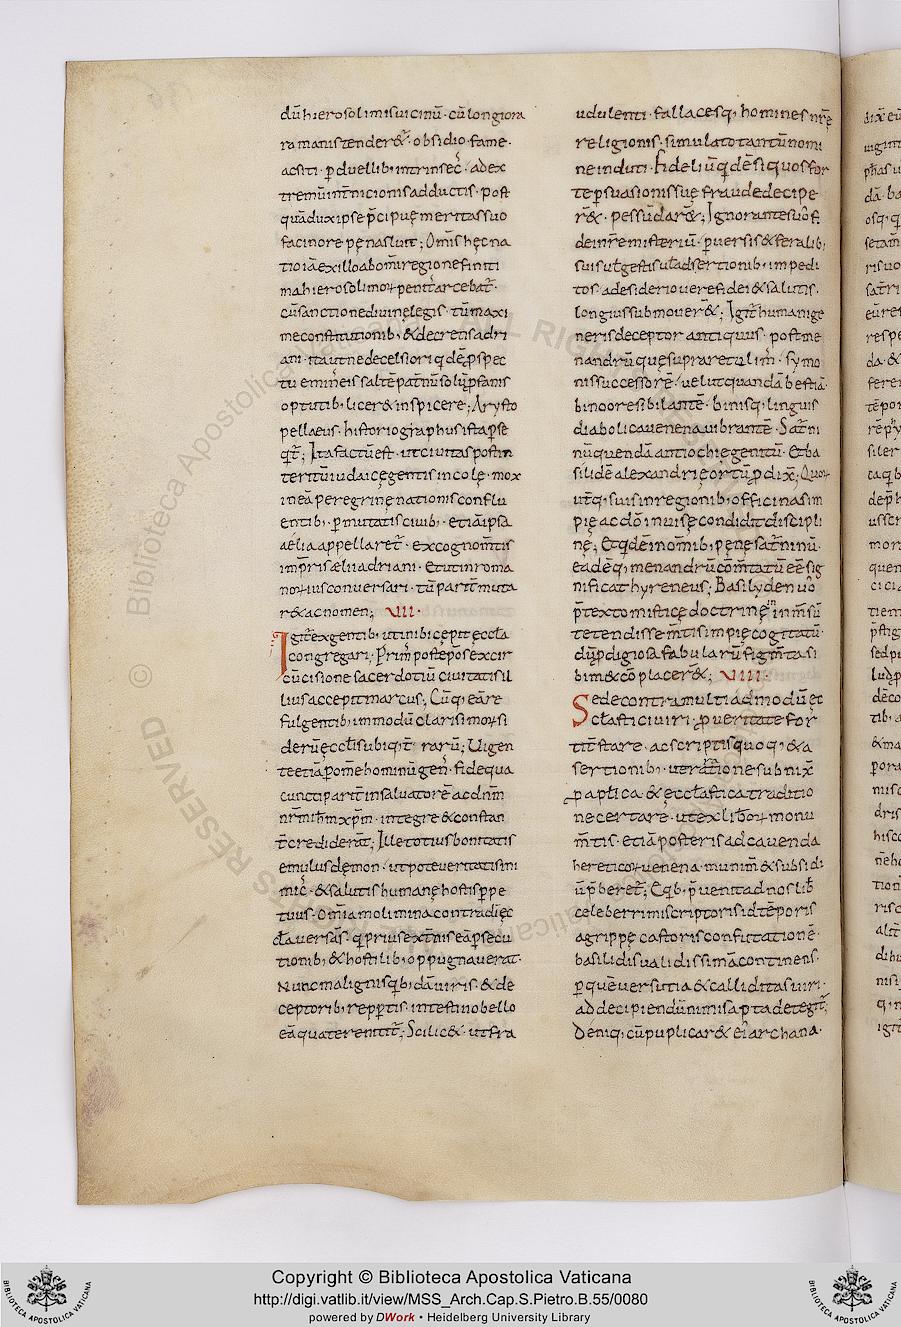 dū hierosolimis uicinū · cū longiora
ra manistender&̄ · obsidio fame ·
ac siti · p̱duellib; intrinsec̄ · ad ex
tremū int̄nicionis adductis · post
quā dux ipse p̄cipuę meritas suo
facinore pęnas luit ; Om̄is hęc na
tio iā ex illo ab om̄i regione finiti
ma hierosolimoꝝ penit̄ arcebat̄ ·
cū sanctione diuinę legis · tū maxi
me constitutionib; & decretis adri
ani · ita ut ne de celsiori qdē p̱spec
tu emineis saltē patnū solū p̱fanis
optutib; licer& inspicere ; Arysto
pellaeus · historiographus ista p̱se
qt̄ ; Ita factū est · ut ciuitas postin
teritū iudaicę gentis incolę · mox
in ea peregrinę nationis conflu
entib; p̱mutatis ciuib; etiā ipsa
aelia appellaret̄ · ex cognom̄tis
imp̄ris æli adriani · Et ut in roma
noꝝ ius conuersari · tū parit̄ muta
r& ac nomen ; VIII ·
Igit̄ ex gentib; ut inibi cępit ęccƚa
congregari ; Prim̄ post epōs ex cir
cūcisione sacerdotiū ciuitatis il
lius accepit marcus ; Cūq; eā re
fulgentib; immodū clarisimoꝝ si
derū ęccƚi sub iq;t̄ rarū ; Uigen
te etiā p̱ om̄e hominū gen̄ · fide qua
cuncti parit̄ in saluatorē ac dn̄m
nr̄m ih̄m xp̄m · integre & constan
t̄ crediderāt ; Ille totius bonitatis
emulus dęmon · ut pote ueritatis ini
mic̄ · & salutis humanę hostis p̱pe
tuus · Om̄ia molimina contra dī ęc
cƚa uersās · q prius ext̄nis eā p̱secu
tionib; & hostilib; oppugnauerat ·
Nunc malignis qb;dā uiris · & de
ceptorib; repp̱tis · intestino bello
eā quater enitit̄ ; Scilic& · ut fra
udulenti · fallacesq; homines nr̄ę
religionis · simulato tantū nomi
ne induti · Fideliū qdē si quos for
te p̱suasionis suę fraude decipe
r& · pessū dar& ; Ignorantes uō f
dei nr̄ę misteriū · p̱uersis & feralib;
suis uƚ gestis uƚ adsertionib; impedi
tos · a desiderio uerę fidei & salutis ·
longius submouer& ; Igit̄ humani ge
neris deceptor antiquus · post me
nandrū quę supra retulim̄ · symo
nis successorē · uelut quandā bestiā
bino ore sibilantē · binisq; linguis
diabolica uenena uibrantē · Sat̄ni
nū quendā antiochię genitū · Et ba
silidē alexandrię ortū p̱dix̄ ; Quoꝝ
ut̄q; suis in regionib; officinas im
pię ac dō inuisę condidit discipli
nę ; Et qdē in om̄ib; pęne sat̄ninū ·
eadēq; menandrū com̄tatū eē sig
nificat hyreneus ; Basilyden uō
p̄texto misticę doctrinę in īm̄sū
tetendisse m̄tis impię cogitatū ·
dū p̱digiosa fabularū figm̄ta si
bim& cōplacer& ; VIIII ·
Sed e contra multi ad modū ęc
cƚastici uiri · p̱ ueritate for
tit̄ stare · ac scriptis quoq; & a
sertionib; ueratione subnix̄
p̱ apƚica & ęccƚastica traditio
ne certare · ut ex libroꝝ monu
m̄tis · etiā posteris ad cauenda
hereticoꝝ uenena · munim̄ & subsidi
ū p̄beret̄ ; E qb; p̱uenit ad nos lib̄
celeberrimi scriptoris id tēporis
agrippę castoris confutationē ·
basilidis ualidissimā continens ·
p̱ quē uersutia & calliditas uiri ·
ad decipiendū nimis apta detegit̄ ;
Deniq; cū puplicar& ei archana ·
Copyright © Biblioteca Apostolica Vaticana
http://digi.vatlib.it/view/MSS_Arch.Cap.S.Pietro.B.55/0080
powered by DWork • Heidelberg University Library